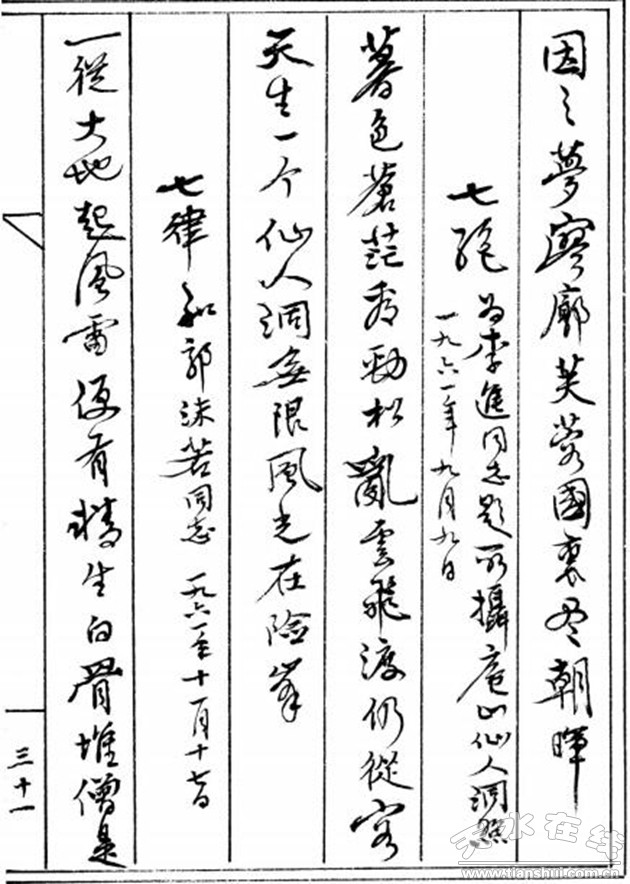 因之夢寥廓芙蓉國裏尽朝暉
七絕 为李進同志題所攝庐山仙人洞照
一九六一年九月九日
暮色蒼茫看勁松亂雲飛渡仍從容
天生一个仙人洞無限風光在险峯
七律 和郭沫若同志 一九六一年十一月十七日
一從大地起風雷便有精生白骨堆僧是
三十一
天水在线
www.tianshui.com.cn